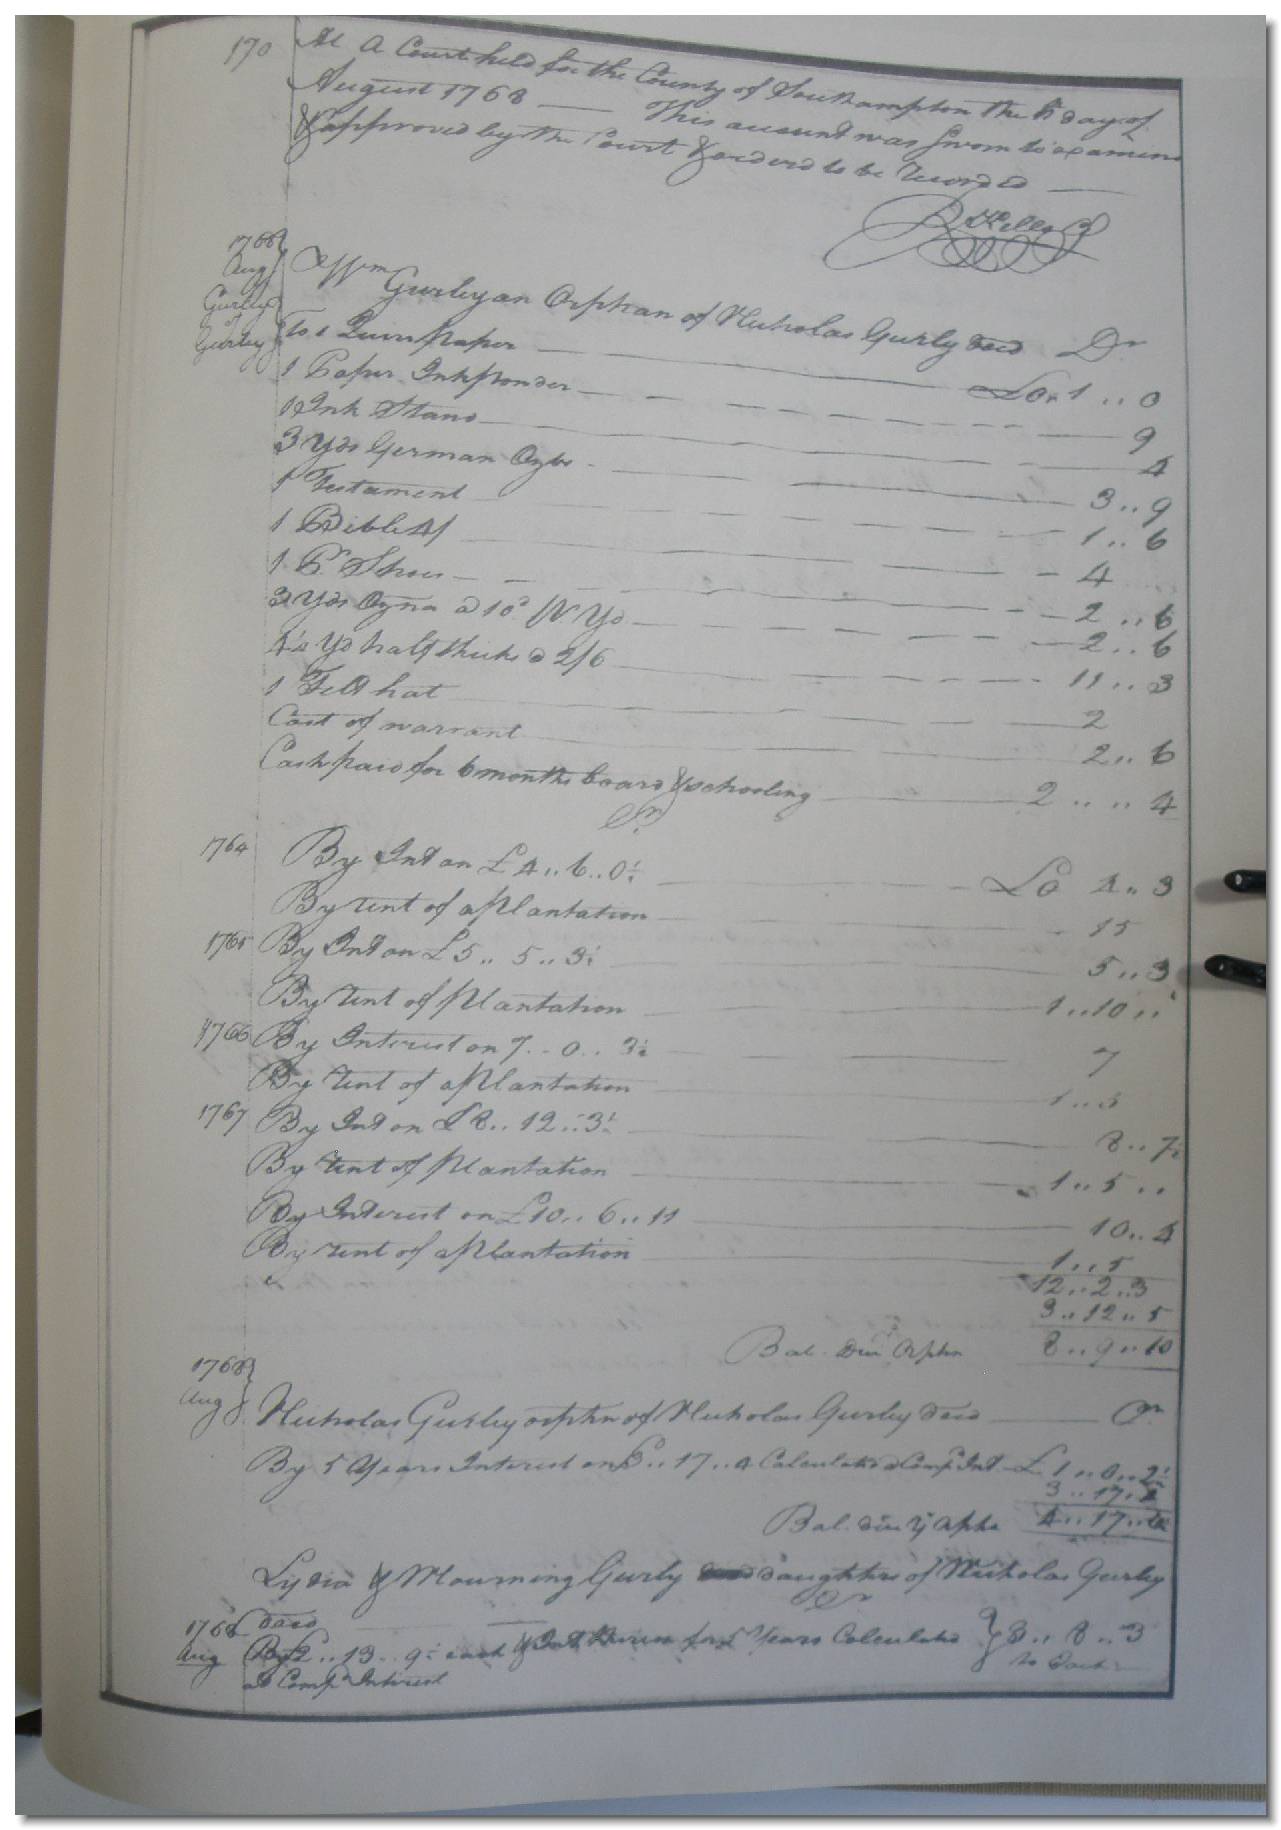 170
At A Court held for the County of Southampton the day of
August 1768 — This account was sworn to examind
& approved by the Court & orderd to be Recorded —
Kello
1768
Aug
Gurley
Gurley
Wm Gurley an Orphan of Nicholas Gurly decd Dr
To 1 Quire paper — £0.. 1 .. 0
1 Paper Inkpowder — 9
1 Ink Stand — 4
3 Yds German Ozbs — 3 .. 9
1 Testament — 1 .. 6
1 Bible 4/ — 4
1 Pr Shoes — 2 .. 6
3 Yds Ozna @ 10d Yd — 2 .. 6
4½ Yd half thicks @ 2/6 — 11 .. 3
1 Felt hat — 2
Cost of warrant — 2 .. 6
Cash paid for 6 months board & schooling — 2 .. .. 4
Cr
1764 By Int on £4 .. 6 .. 0½ — £0 4 .. 3
By rent of a Plantation — 15
1765 By Int on £5 .. 5 .. 3½ — 5 .. 3
By rent of plantation — 1 .. 10 ..
1766 By Interest on 7 .. 0 .. 3½ — 7
By rent of a Plantation — 1 .. 5
1767 By Int on £8 .. 12 .. 3½ — 8 .. 7½
By rent of plantation — 1 .. 5 ..
By Interest on £10 .. 6 .. 11 — 10 .. 4
By rent of a Plantation — 1 .. 5
12 .. 2 .. 3
3 .. 12 .. 5
Bal. due Orphn 8 .. 9 .. 10
1768
Aug
Nicholas Gurley orphn of Nicholas Gurley decd — Cr
By 5 Years Interest on £3 .. 17 .. 4 Calculated Comp Int — £1 .. 0 .. 2½
3 .. 17 .. 4
Bal. due ye Orphn 4 .. 17 ..
Lydia & Mourning Gurly daughters of Nicholas Gurley
decd — Cr
1768 By £2 .. 13 .. 9½ each & Int for 5 Years Calculated 3 .. 8 .. 3
Aug at Comp Interest to Each